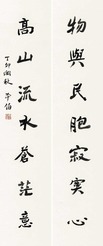 物與民胞寂寞心
高山流水蒼茫意
丁卯